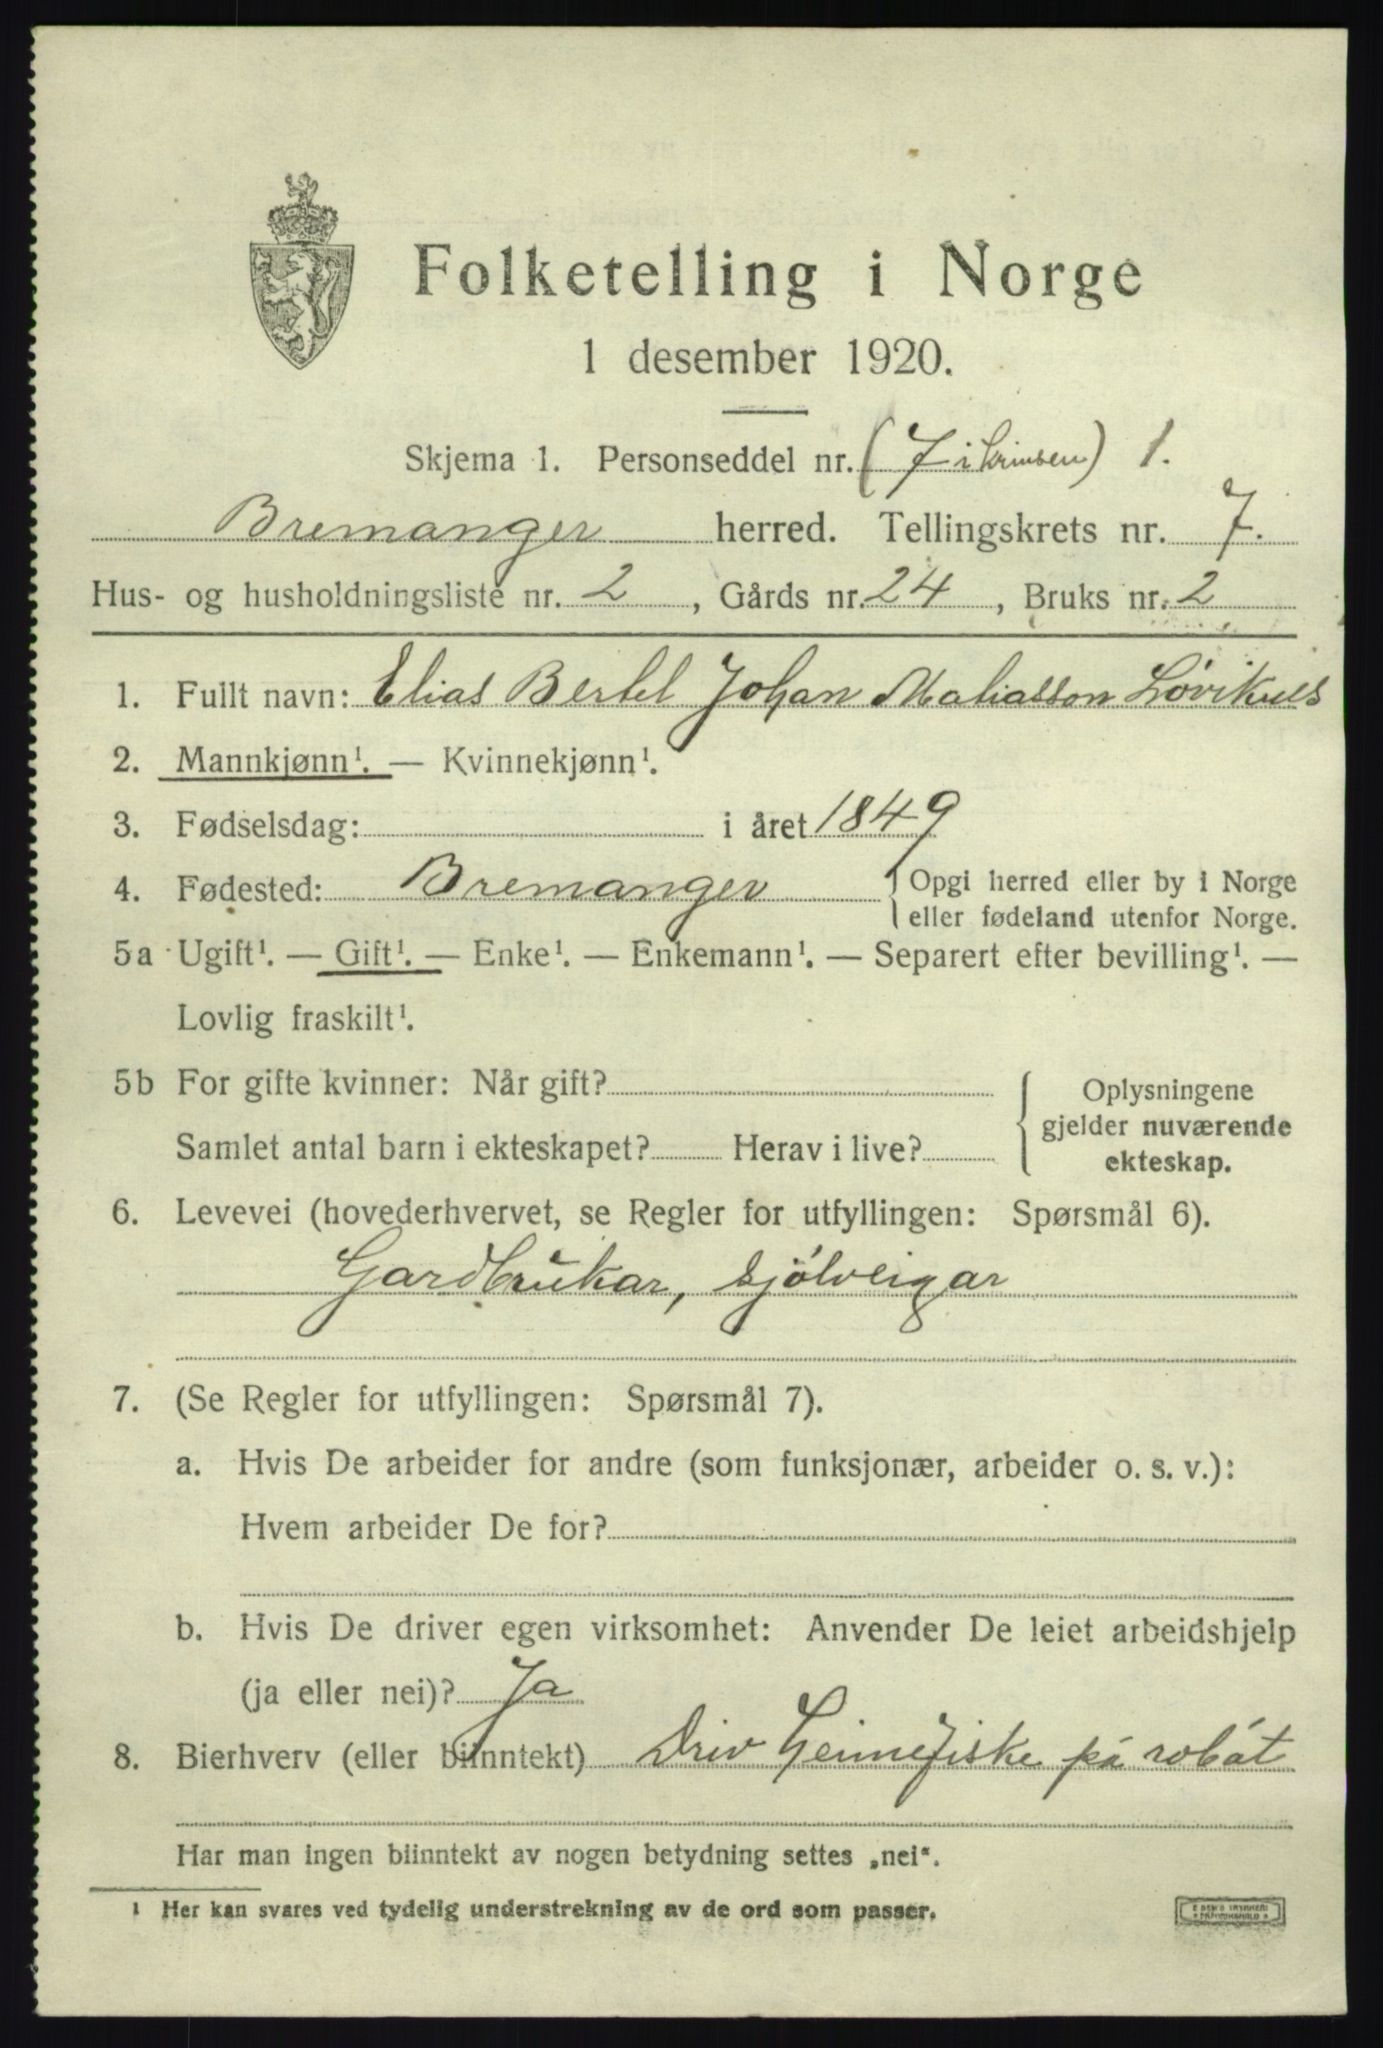 Folketelling i Norge
1 desember 1920.
Skjema 1. Personseddel nr. (7 i krinsen) 1.
Bremanger herred. Tellingskrets nr. 7.
Hus- og husholdningsliste nr. 2, Gårds nr. 24, Bruks nr. 2
1. Fullt navn: Elias Bertel Johan Matiasson
2. Mannkjønn¹. — Kvinnekjønn¹.
3. Fødselsdag: i året 1849
4. Fødested: Bremanger { Opgi herred eller by i Norge
eller fødeland utenfor Norge.
5a Ugift¹. — Gift¹. — Enke¹. — Enkemann¹. — Separert efter bevilling¹. —
Lovlig fraskilt¹.
5b For gifte kvinner: Når gift?
Samlet antal barn i ekteskapet? Herav i live?
Oplysningene
gjelder nuværende
ekteskap.
6. Levevei (hovederhvervet, se Regler for utfyllingen: Spørsmål 6).
Gardbrukar, sjölveigar
7. (Se Regler for utfyllingen: Spørsmål 7).
a. Hvis De arbeider for andre (som funksjonær, arbeider o. s. v.):
Hvem arbeider De for?
b. Hvis De driver egen virksomhet: Anvender De leiet arbeidshjelp
(ja eller nei)? Ja
8. Bierhverv (eller biinntekt) Driv heimefiske på robåt
Har man ingen biinntekt av nogen betydning settes „nei“.
¹ Her kan svares ved tydelig understrekning av de ord som passer.